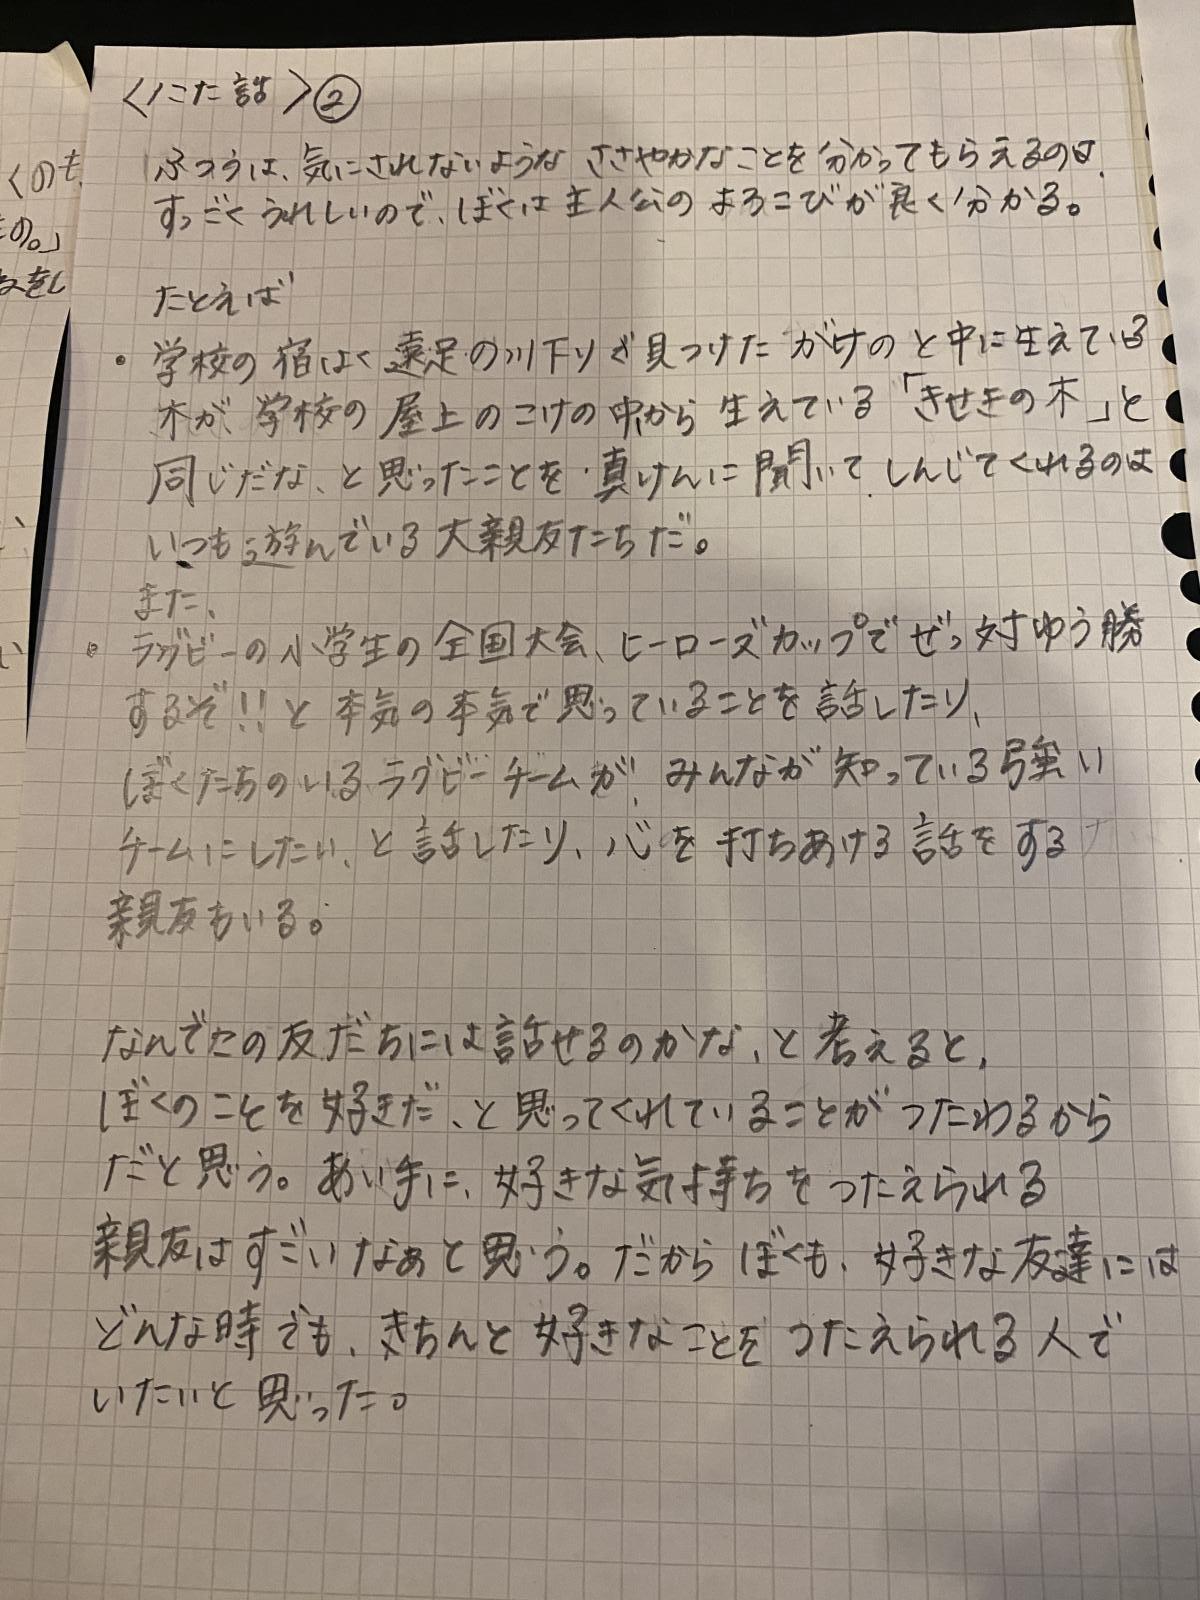 <にた話>②
ふつうは、気にされないような ささやかなことを分かってもらえるのは、
すっごくうれしいので、ぼくは主人公のよろこびが良く分かる。
たとえば
・学校の宿はく遠足の川下りで見つけた がけのと中に生えている
木が、学校の屋上のこけの中から生えている「きせきの木」と
同じだな、と思ったことを、真けんに聞いて、しんじてくれるのは
いつも遊んでいる大親友たちだ。
また、
・ラグビーの小学生の全国大会、ヒーローズカップでぜっ対ゆう勝
するぞ!!と本気の本気で思っていることを話したり、
ぼくたちのいるラグビーチームが、みんなが知っている強い
チームにしたい、と話したり、心を打ちあける話をする
親友もいる。
なんでこの友だちには話せるのかな、と考えると、
ぼくのことを好きだ、と思ってくれていることがつたわるから
だと思う。あい手に、好きな気持ちをつたえられる
親友はすごいなぁと思う。だからぼくも、好きな友達には
どんな時でも、きちんと好きなことをつたえられる人で
いたいと思った。
くのも
その。」
をし